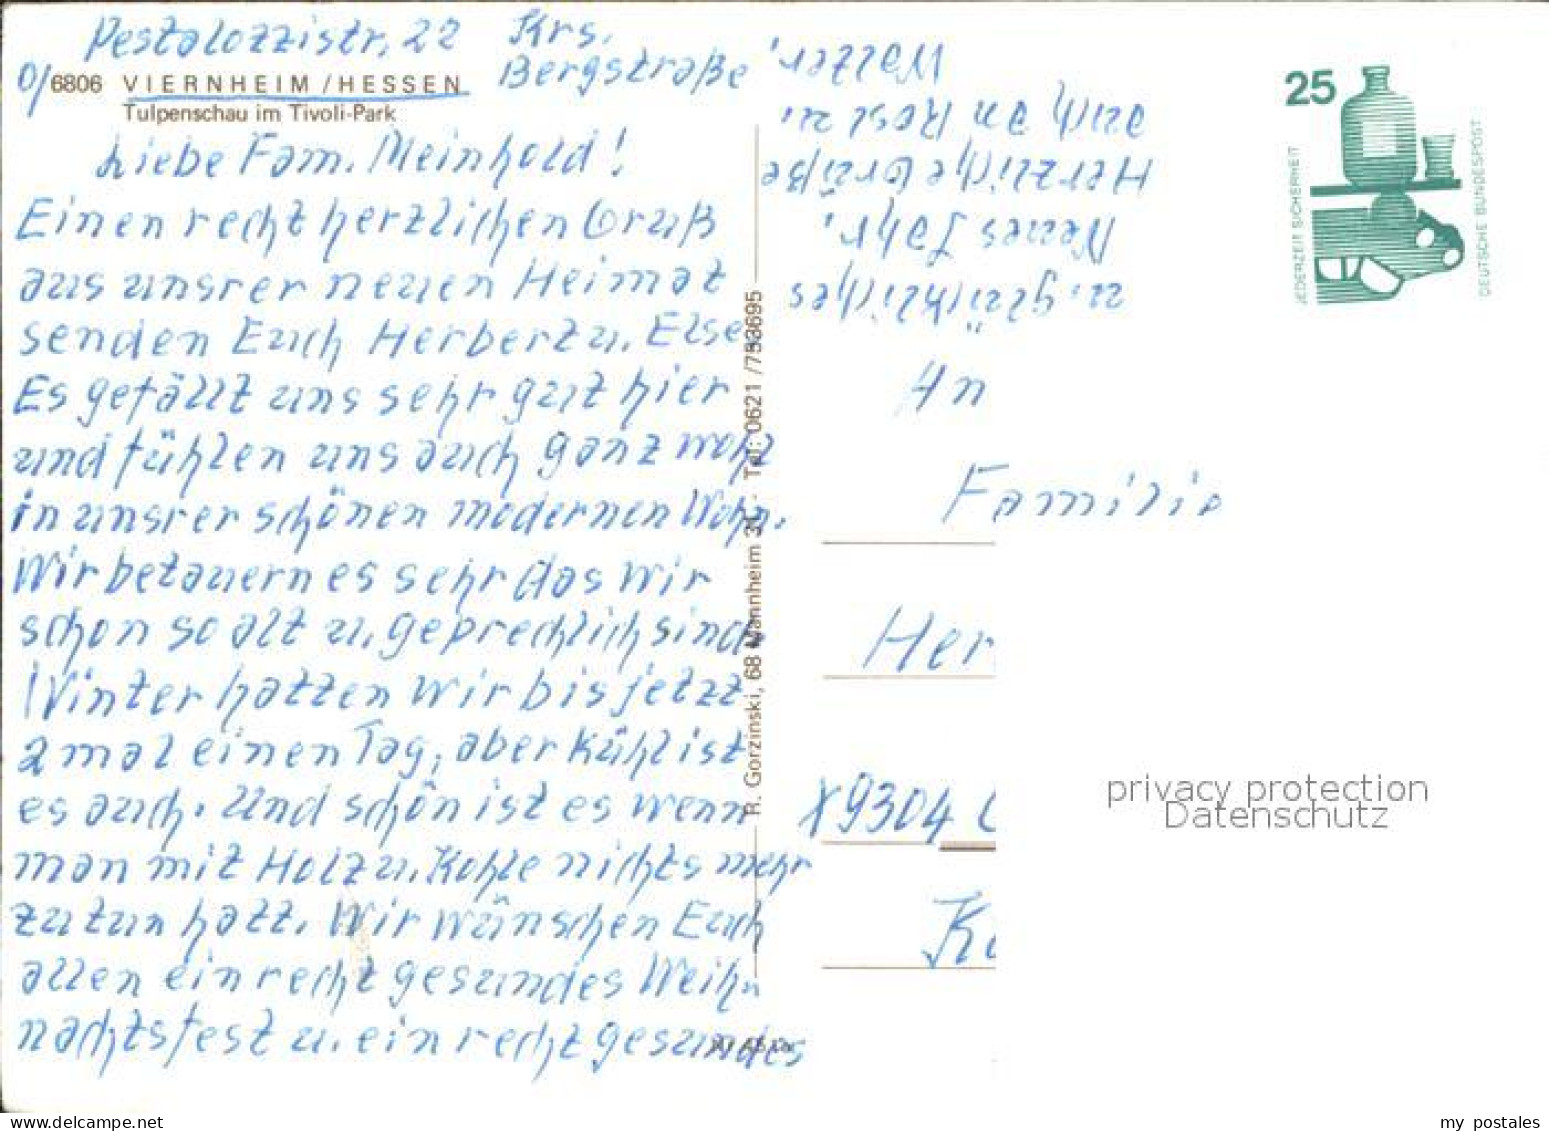 Pestalozzistr. 22 Krs.
Bergstraße
0/6806 VIERNHEIM / HESSEN
Tulpenschau im Tivoli-Park
Liebe Fam. Meinhold!
Einen recht herzlichen Gruß
aus unsrer neuen Heimat
senden Euch Herbert u. Else
Es gefällt uns sehr gut hier
und fühlen uns auch ganz wohl
in unsrer schönen modernen Wohn.
Wir betauern es sehr das wir
schon so alt u. geprechlich sind
Winter hatten wir bis jetzt
2 mal einen Tag, aber kühl ist
es auch. Und schön ist es wenn
man mit Holz u. Kohle nichts mehr
zu tun hatt. Wir wünschen Euch
allen ein recht gesundes Weih-
nachtsfest u. ein recht gesundes
u. glückliches
Neues Jahr.
Herzliche Grüße
auch an Rosl u.
Walter.
R. Gorzinski, 68 Mannheim 31 - Tel: 0621 /753695
25
JEDERZEIT SICHERHEIT
DEUTSCHE BUNDESPOST
An
Familie
Her
X9304
privacy protection
Datenschutz
my postales